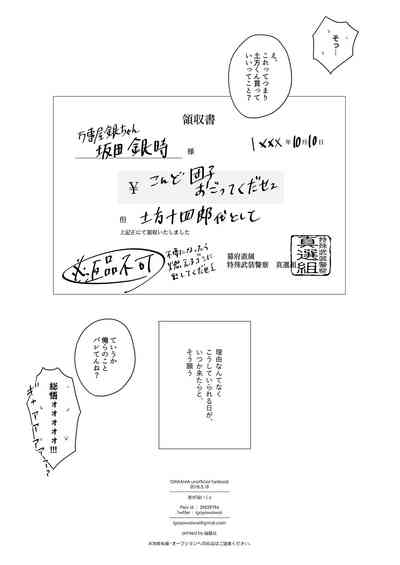 そっ…
え、
これってつまり
土方くん貰って
いいってこと？
領収書
万事屋銀ちゃん
坂田 銀時 様
1xxx年10月10日
¥ こんど 団子
おごってくだせェ
但 土方十四郎 代として
上記正にて領収いたしました
※返品不可
不要になったら
燃えるゴミに
出してくだせェ
幕府直属
特殊武装警察 真選組
特殊武装警察
真選組
ていうか
俺らのこと
バレてんね？
総悟オォオオオオ!!!
ギャアアアアアー…
理由なんてなく
こうしていられる日が、
いつか来たらと、
そう願う
GINTAMA unofficial fanbook